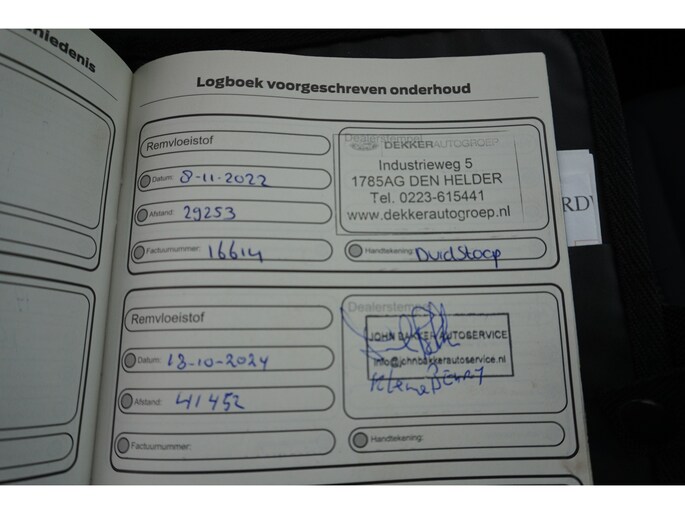 hiedenis
Logboek voorgeschreven onderhoud
Remvloeistof
Datum: 8-11-2022
Afstand: 29253
Factuurnummer: 16614
Dealerstempel
DEKKERAUTOGROEP
Industrieweg 5
1785AG DEN HELDER
Tel. 0223-615441
www.dekkerautogroep.nl
Handtekening:
Remvloeistof
Datum: 18-10-2024
Afstand: 41452
Factuurnummer:
Dealerstempel
JOHN BAKKER AUTOSERVICE
info@johnbakkerautoservice.nl
Handtekening:
RDW